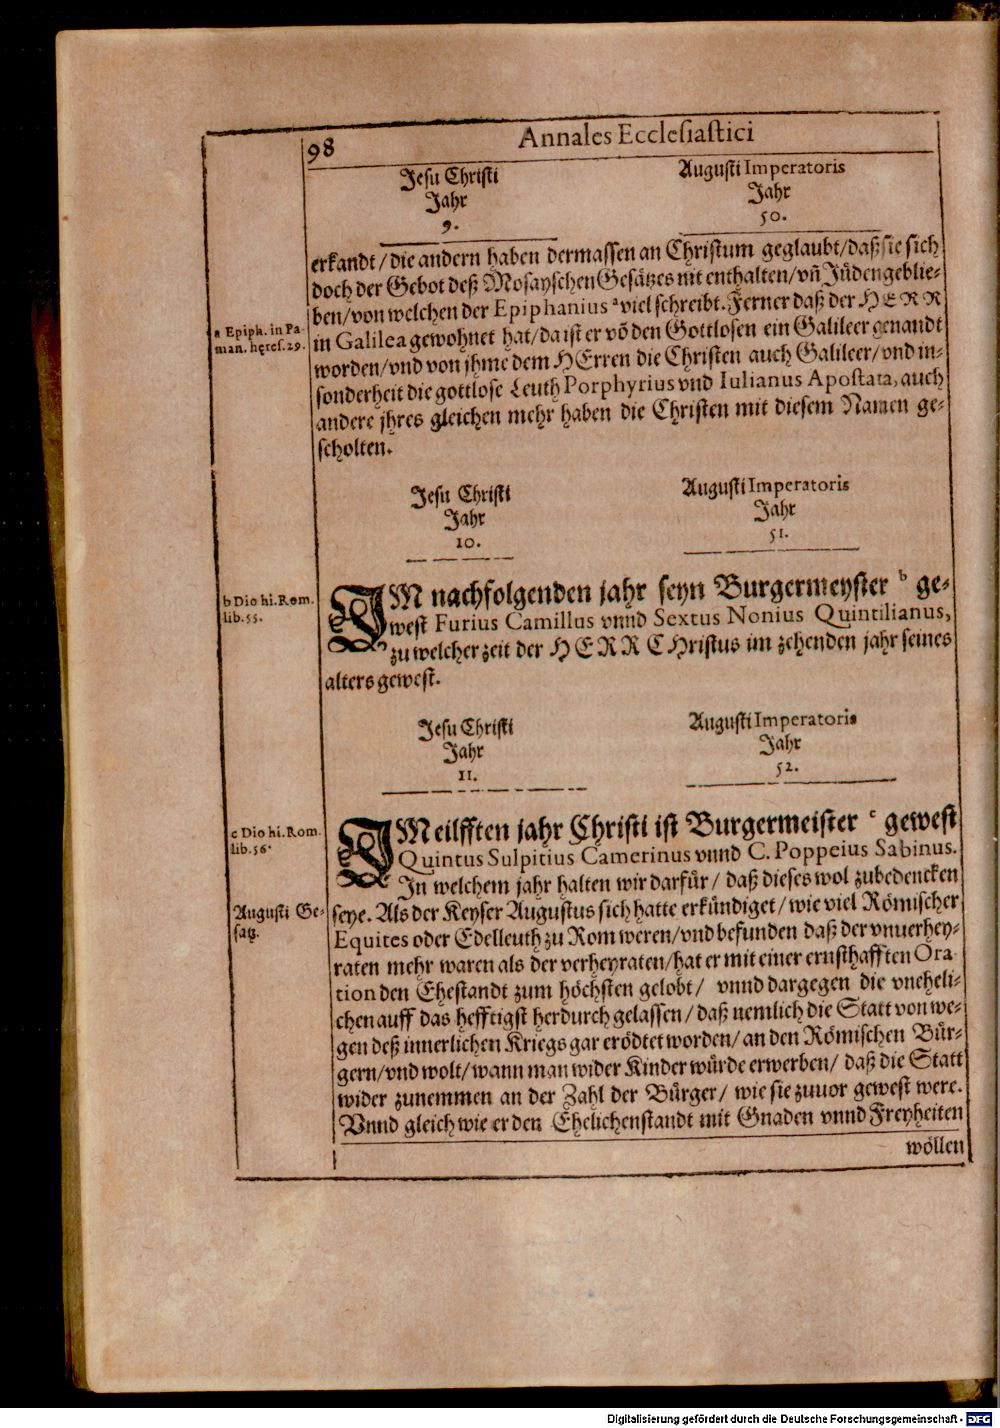 98 Annales Ecclesiastici
Jesu Christi
Jahr
9.
Augusti Imperatoris
Jahr
50.
erkandt/die andern haben dermassen an Christum geglaubt/daß sie sich
doch der Gebot deß Mosayschen Gesätzes nit enthalten/vñ Jüden geblie-
ben/von welchen der Epiphanius ᵃ viel schreibt. Ferner daß der HERR
a Epiph. in Pa-
man. hęres. 29.
in Galilea gewohnet hat/da ist er võ den Gottlosen ein Galileer genandt
worden/vnd von jhme dem HErren die Christen auch Galileer/vnd in-
sonderheit die gottlose Leuth Porphyrius vnd Iulianus Apostata, auch
andere jhres gleichen mehr haben die Christen mit diesem Namen ge-
scholten.
Jesu Christi
Jahr
10.
Augusti Imperatoris
Jahr
51.
b Dio hi. Rom.
lib. 55.
IM nachfolgenden jahr seyn Burgermeyster ᵇ ge-
west Furius Camillus vnnd Sextus Nonius Quintilianus,
zu welcher zeit der HERR CHristus im zehenden jahr seines
alters gewest.
Jesu Christi
Jahr
11.
Augusti Imperatoris
Jahr
52.
c Dio hi. Rom.
lib. 56.
IM eilfften jahr Christi ist Burgermeister ᶜ gewest
Quintus Sulpitius Camerinus vnnd C. Poppeius Sabinus.
In welchem jahr halten wir darfür/ daß dieses wol zubedencken
Augusti Ge-
satz.
seye. Als der Keyser Augustus sich hatte erkündiget/wie viel Römischer
Equites oder Edelleuth zu Rom weren/vnd befunden daß der vnuerhey-
raten mehr waren als der verheyraten/hat er mit einer ernsthafften Ora
tion den Ehestandt zum höchsten gelobt/ vnnd dargegen die vneheli-
chen auff das hefftigst herdurch gelassen/daß nemlich die Statt von we-
gen deß innerlichen Kriegs gar erödtet worden/an den Römischen Bür-
gern/vnd wolt/wann man wider Kinder würde erwerben/ daß die Statt
wider zunemmen an der Zahl der Bürger/ wie sie zuuor gewest were.
Vnnd gleich wie er den Ehelichenstandt mit Gnaden vnnd Freyheiten
wöllen
Digitalisierung gefördert durch die Deutsche Forschungsgemeinschaft - DFG